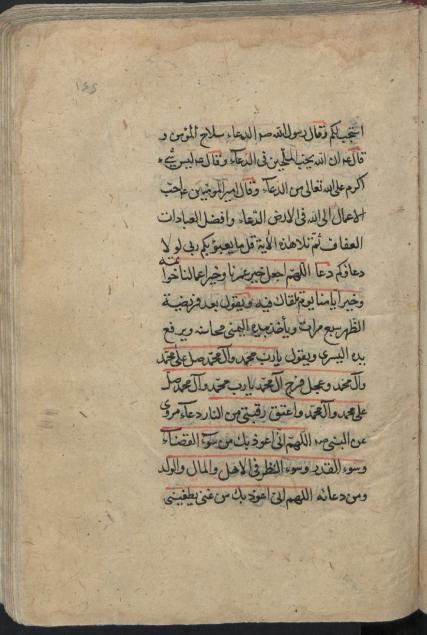 ۱۶۶
استجب لكم وقال رسول الله صه الدعاء سلاح المؤمن و
قال عه ان الله يحب الملحين فى الدعاء وقال عه ليس شىء
اكرم على الله تعالى من الدعاء وقال امير المومنين ع احب
الاعمال الى الله فى الارض الدعاء وافضل العبادات
العفاف ثم تلا هذه الاية قل ما يعبؤبكم ربى لولا
دعاؤكم دعا اللهم اجعل خير عمرنا وخير اعمالنا خواتمه
وخير ايامنا يوم نلقاك فيه ويقول بعد فريضة
الظهر سبع مرات وياخذ بيده اليمنى محاسنه ويرفع
يده اليسرى ويقول يا رب محمد وآل محمد صل على محمد
وآل محمد وعجل فرج آل محمد يا رب محمد وآل محمد صل
على محمد وآل محمد واعتق رقبتى من النار دعاء مروى
عن النبى صه اللهم انى اعوذ بك من سوء القضاء
وسوء القدر وسوء النظر فى الاهل والمال والولد
ومن دعائه اللهم انى اعوذ بك من غنى يطغينى